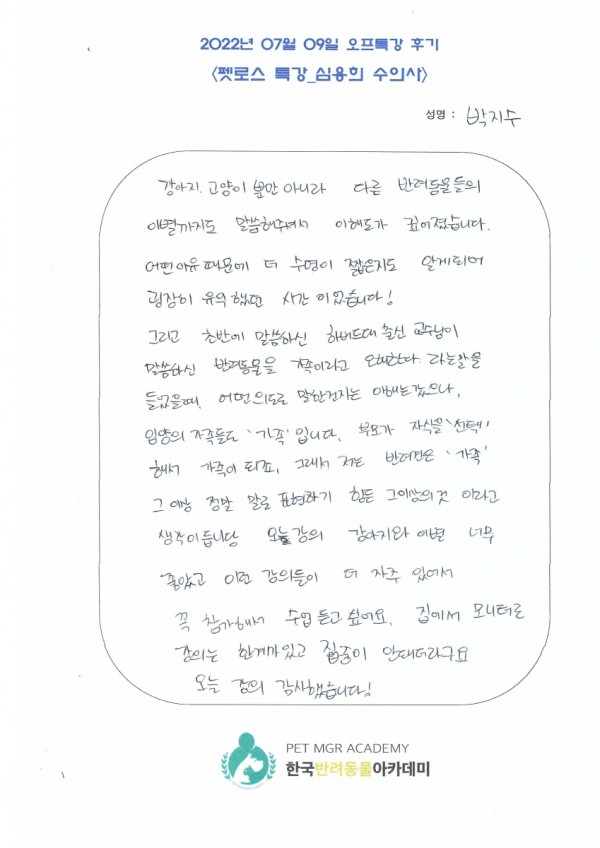 2022년 07월 09일 오프특강 후기
<펫로스 특강_심용희 수의사>
성명 : 박지수
강아지, 고양이 뿐만 아니라 다른 반려동물들의
이별까지도 말씀해주셔서 이해도가 깊어졌습니다.
어떤이유 때문에 더 수명이 짧은지도 알게되어
굉장히 유익했던 시간이었습니다!
그리고 초반에 말씀하신 하버드대 출신 교수님이
말씀하신 반려동물을 가족이라고 오해한다 라는말을
들었을때, 어떤의도로 말한건지는 이해는갔으나,
입양의 가족들도 '가족'입니다. 부모가 자식을 '선택'
해서 가족이 되죠, 그래서 저는 반려견은 '가족'
그 이상 정말 말로 표현하기 힘든 그이상의것 이라고
생각이듭니당 오늘강의 강아지와 이별 너무
좋았고 이런 강의들이 더 자주 있어서
꼭 참가해서 수업 듣고 싶어요. 집에서 모니터로
강의는 한계가있고 집중이 안돼더라구요
오늘 강의 감사했습니다!
PET MGR ACADEMY
한국반려동물아카데미